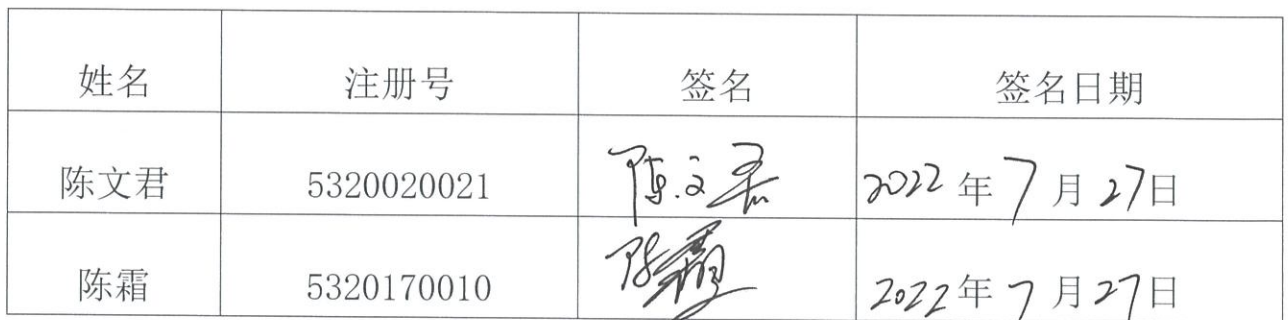 姓名 注册号 签名 签名日期
陈文君 5320020021 陈文君 2022年7月27日
陈霜 5320170010 陈霜 2022年7月27日